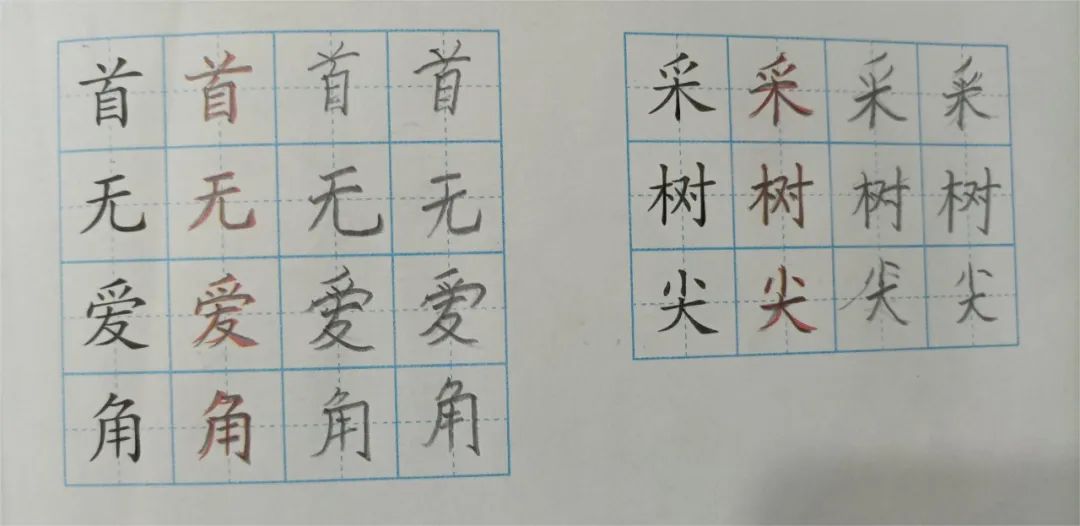 首首首首
无无无无
爱爱爱爱
角角角角
采采采采
树树树树
尖尖尖尖